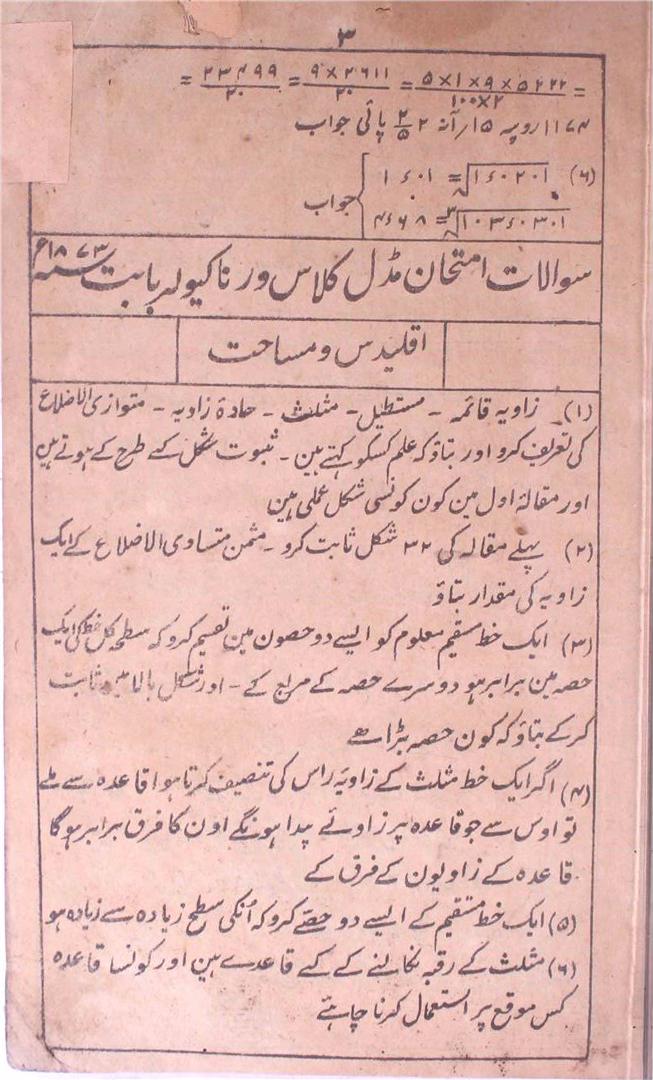 ۳
= ۵۲۲۲ × ۹ × ۱ × ۵ / ۱۰۰×۲ = ۲۶۱۱ × ۹ / ۲۰ = ۲۳۴۹۹ / ۲۰ =
۱۱۷۴ روپیہ ۱۵؍ آنہ ۲ ۲/۵ پائی جواب
(۶) √۱ء۰۲۰۱ = ۱ء۰۱
∛۱۰۳ء۰۳۰۱ = ۴ء۶۸ جواب
سوالات امتحان مڈل کلاس ورناکیولر بابت سنہ ۱۸۷۳ء
اقلیدس و مساحت
(۱) زاویہ قائمہ - مستطیل - مثلث - حادۂ زاویہ - متوازی الاضلاع
کی تعریف کرو اور بتاؤ کہ علم کسکو کہتے ہین - ثبوت شکل کے طرح کے ہوتے ہین
اور مقالۂ اول مین کون کونسی شکل عملی ہین
(۲) پہلے مقالہ کی ۳۲ شکل ثابت کرو - مثمن متساوی الاضلاع کے ایک
زاویہ کی مقدار بتاؤ
(۳) ایک خط مستقیم معلوم کو ایسے دو حصون مین تقسیم کرو کہ سطح کل خط کی ایک
حصہ مین برابر ہو دوسرے حصہ کے مربع کے - اور شکل بالا مین ثابت
کر کے بتاؤ کہ کون حصہ بڑا ہے
(۴) اگر ایک خط مثلث کے زاویۂ راس کی تنصیف کرتا ہوا قاعدہ سے ملے
تو اوس سے جو قاعدہ پر زاوئے پیدا ہونگے اون کا فرق برابر ہوگا
قاعدہ کے زاویون کے فرق کے
(۵) ایک خط مستقیم کے ایسے دو حصے کرو کہ اُنکی سطح زیادہ سے زیادہ ہو
(۶) مثلث کے رقبہ نکالنے کے کے قاعدے ہین اور کونسا قاعدہ
کس موقع پر استعمال کرنا چاہئے